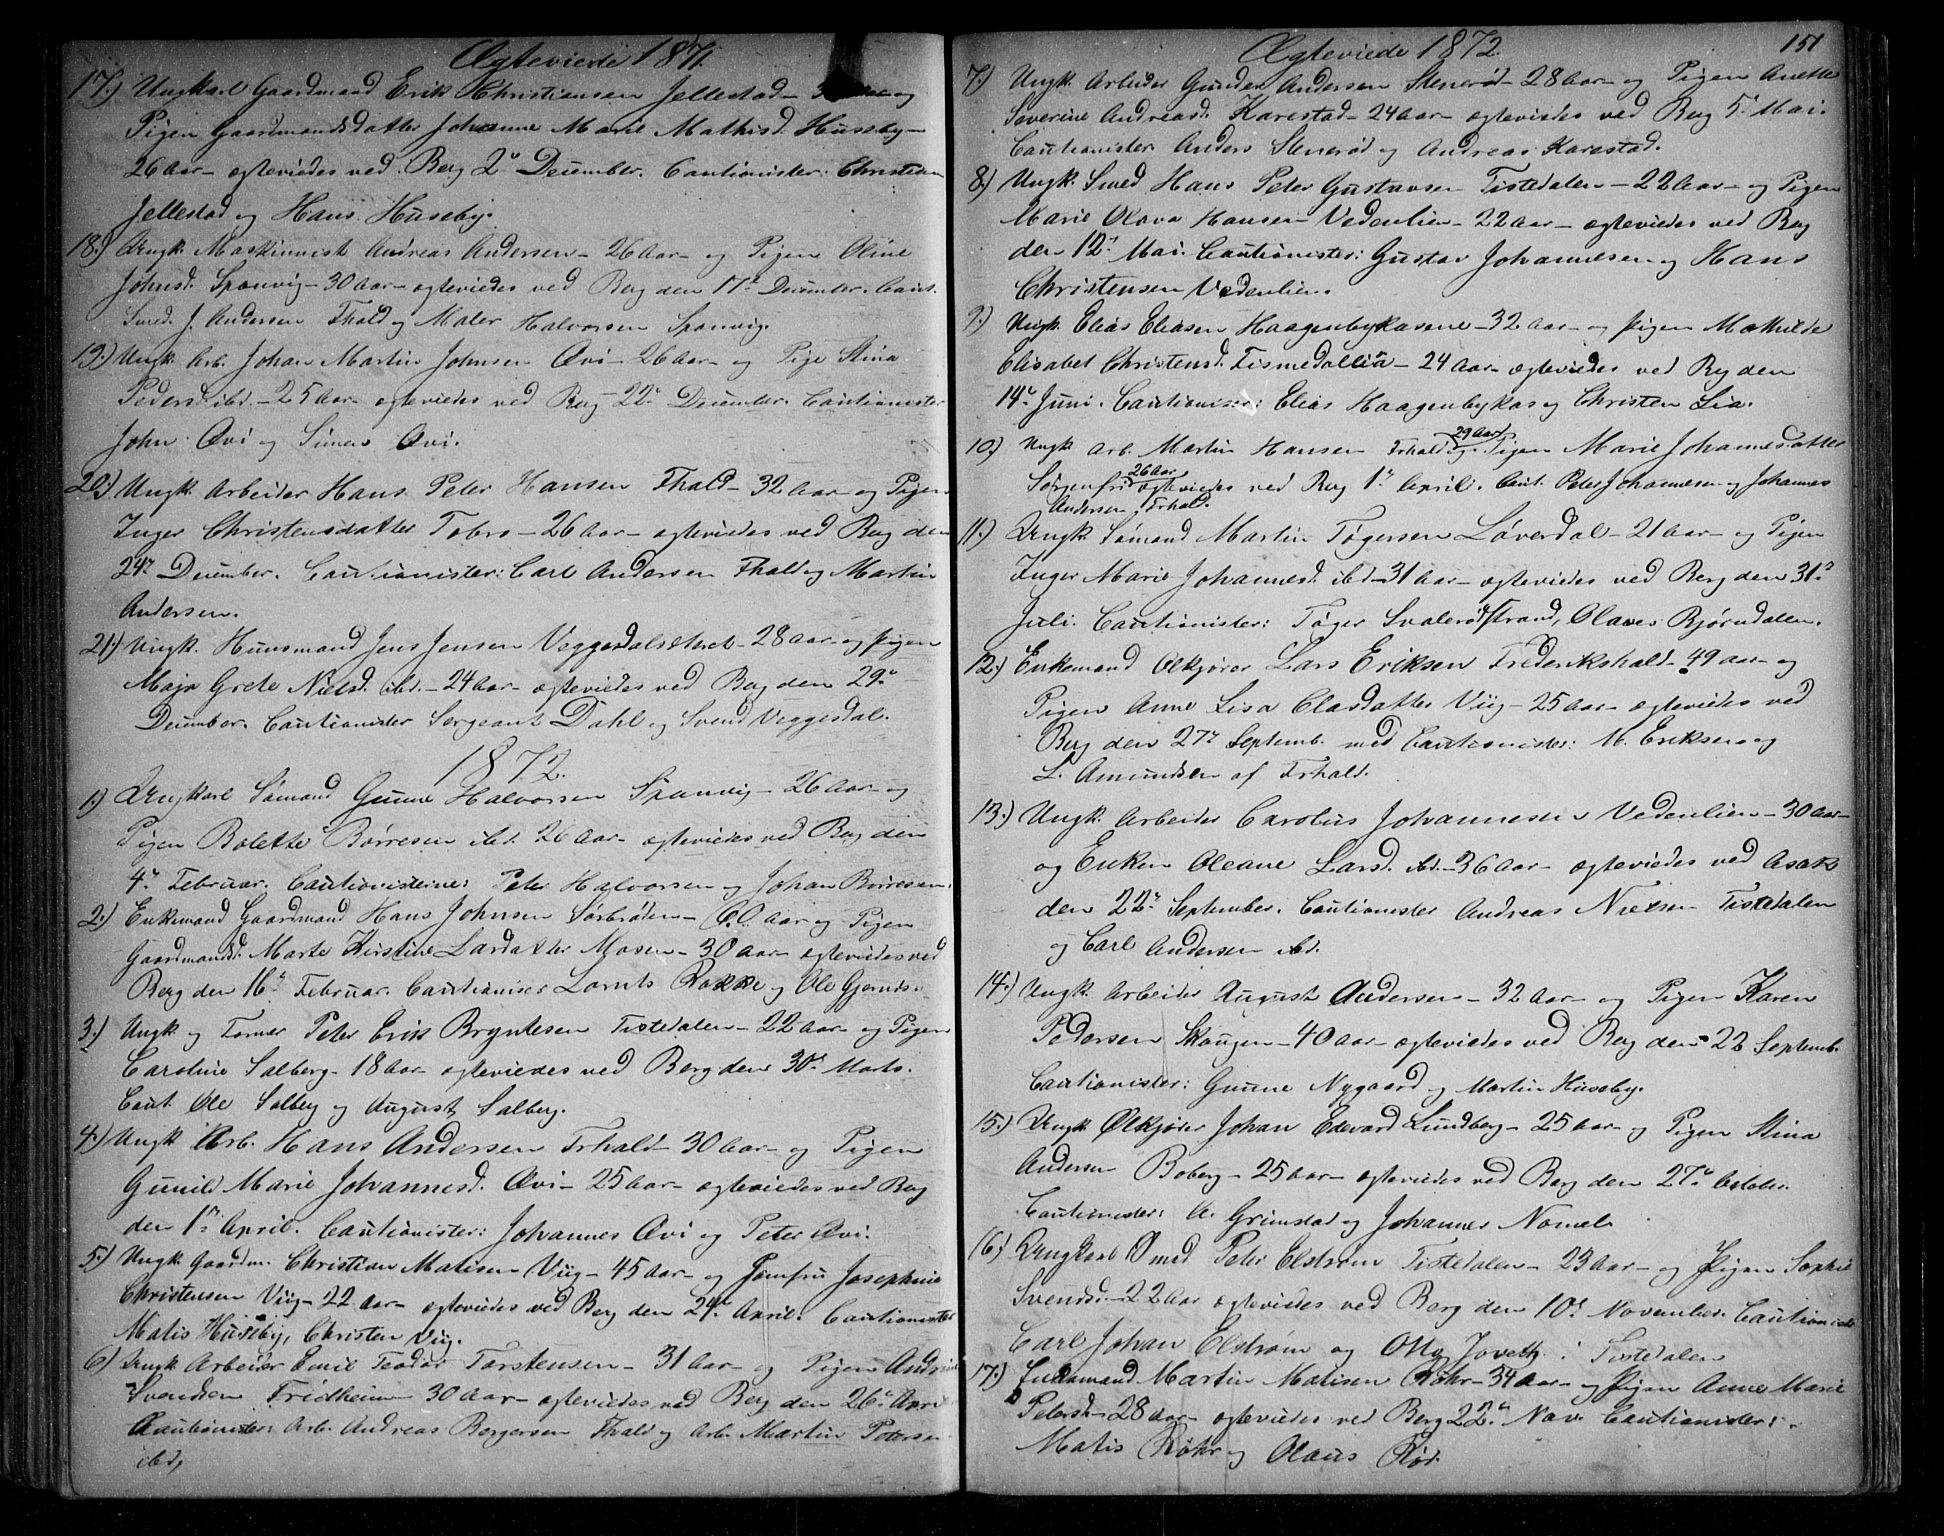 Ægteviede 1871.
17.) Ungkarl Gaardmand Erik Christiansen Jellestad – og
Pigen Gaardmandsdatter Johanne Marie Mathisd. Huseby –
26 Aar – ægteviedes ved Berg 2den December. Cautionister: Christian
Jellestad og Hans Huseby.
18.) Ungk. Maskinmist Andreas Andersen – 26 Aar – og Pigen Oline
Johnsd. Sponvig – 30 Aar – ægteviedes ved Berg den 17de December. Caut.
Smed. J. Andersen Fhald og Maler Halvorsen Sponvig.
19.) Ungk. Arb. Johan Martin Johnsen Øvi – 26 Aar – og Pige Stina
Pedersd. ibd. – 25 Aar – ægteviedes ved Berg – 22de December. Cautionister
John Øvi og Simen Øvi.
20.) Ungk. Arbeider Hans Peter Hansen Fhald – 32 Aar – og Pigen
Inger Christensdatter Tobro – 26 Aar – ægteviedes ved Berg den
24de December. Cautionister: Carl Andersen Fhald og Martin
Andersen.
21.) Ungk. Huusmand Jens Jensen Veggesdalsteret – 28 Aar – og Pigen
Maja Grete Nielsd. ibd. – 24 Aar – ægteviedes ved Berg den 29de
December. Cautionister Sergeant Dahl og Svend Veggesdal.
1872.
1.) Ungkarl Sømand Gunne Halvorsen Sponvig – 26 Aar – og
Pigen Bolette Børresen ibd. 26 Aar – ægteviedes ved Berg den
4de Februar. Cautionisterne: Peter Halvorsen og Johan Børresen.
2.) Enkemand Gaardmand Hans Johnsen Sørbrøden – 60 Aar og Pigen
Gaardmandsd. Marte Kirstine Larsdatter Mosen – 30 Aar – ægteviedes ved
Berg den 16de Februar. Cautioniser Lornts Rokke og Ole Gjernds.
3.) Ungk og Former Peter Erik Bryntesen Tistedalen – 22 Aar – og Pigen
Caroline Solberg – 18 Aar – ægteviedes ved Berg den 30te Marts.
Caut. Ole Solberg og August Solberg.
4.) Ungk Arb. Hans Andersen Frhald – 30 Aar – og Pigen
Gunild Marie Johannesd. Øvi – 25 Aar – ægteviedes ved Berg
den 1ste April. Cautionister: Johannes Øvi og Peter Øvi.
5.) Ungk Gaardm. Christian Matisen Viig – 45 Aar – og Jomfru Josephine
Christensen Viig – 22 Aar – ægteviedes ved Berg den 24de April. Cautionister
Matis Huseby, Christen Viig.
6.) Ungk Arbeider Emil Teodor Torstensen – 31 Aar – og Pigen
Svendsen Fridheim 30 Aar – ægteviedes ved Berg den 26de
Cautionister: Arb. Andreas Børgersen Fhald og Arb. Martin Petersen
ibd.
Ægteviede 1872.
151
7.) Ungk. Arbeider Gunder Andersen Stenerød – 28 Aar – og Pigen Anette
Severine Andreasd. Karestad – 24 Aar – ægteviedes ved Berg 5te Mai.
Cautionister Anders Stenerød og Andreas Karestad.
8.) Ungk. Smed Hans Peter Gustavsen Tistedalen – 22 Aar – og Pigen
Marie Olava Hansen Vedenlien – 22 Aar – ægteviedes ved Berg
den 12te Mai. Cautionister: Gustav Johannesen og Hans
Christensen Vedenlien.
9.) Ungk. Elias Eliasen Haagenbykasene – 32 Aar – og Pigen Mathilde
Elisabet Christensd. Tismedallia – 24 Aar – ægteviedes ved Berg den
14de Juni. Cautioniser: Elias Haagenbykas og Christen Lia.
10.) Ungk Arb. Martin Hansen Frhald 29 Aar og Pigen Marie Johannesdatter
Sørgenfri 26 Aar ægteviedes ved Berg 1ste April. Caut. Peter Johannesen og Johannes
Andersen Frhald.
11.) Ungk Sømand Martin Tøgersen Løverdal – 21 Aar – og Pigen
Inger Marie Johannesd. ibd – 31 Aar – ægteviedes ved Berg den 31te
Juli. Cautionister: Tøger Svalerødstrand, Olaves Bjørndalen.
12.) Enkemand Ølkjører Lars Eriksen Frederikshald – 49 Aar – og
Pigen Anne Lisa Olasdatter Viig – 25 Aar – ægteviedes ved
Berg den 27de Septemb. med Cautionister: M. Eriksen og
L. Amundsen af Frhald.
13.) Ungk. Arbeider Carolus Johannesen Vedenlien – 30 Aar –
og Enken Oleane Larsd. ibd. – 36 Aar – ægteviedes ved Asak
den 22de September. Cautionister Andreas Nielsen Tistedalen
og Carl Andersen ibd.
14.) Ungk. Arbeider August Andersen – 32 Aar – og Pigen Karen
Pedersen Skougen – 40 Aar – ægteviedes ved Berg den 22 Septemb.
Cautionister: Gunne Nygaard og Martin Huseby.
15.) Ungk Ølkjører Johan Edevard Lundberg – 25 Aar – og Pigen Stina
Andersen Boberg – 25 Aar – ægteviedes ved Berg den 27de October.
Cautionister: A. Grimstad og Johannes Nomel.
16.) Ungkarl Smed Peter Elstrøm Tistedalen – 23 Aar – og Pigen Sophie
Svendsd. – 22 Aar ægteviedes ved Berg den 10de November. Cautionister
Carl Johan Elstrøm og Otto Joveth i Tistedalen
17.) Enkemand Martin Matisen Røhr – 34 Aar – og Pigen Anne Marie
Petersd – 28 Aar – ægteviedes ved Berg 22de Nov. Cautionister:
Matis Røhr og Olaus Rød.